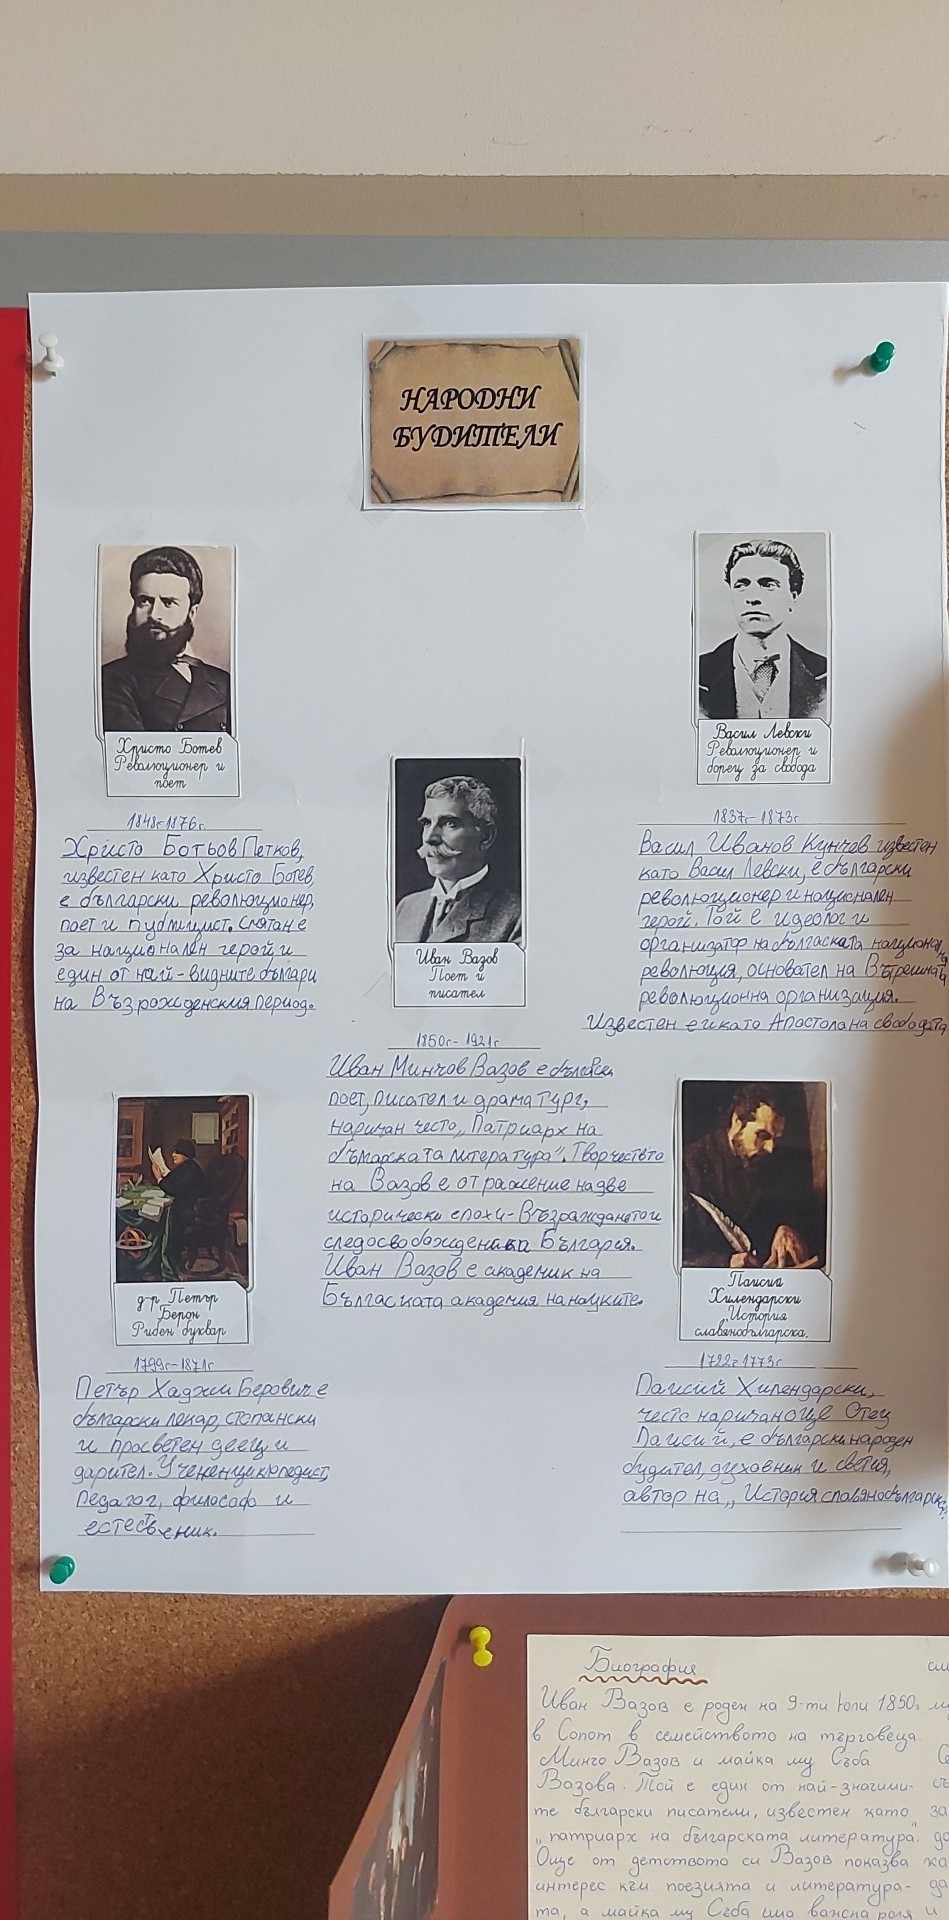 НАРОДНИ
БУДИТЕЛИ
Христо Ботев
Революционер и
поет
1848г-1876г.
Христо Ботьов Петков,
известен като Христо Ботев,
е български революционер,
поет и публицист. Смятан е
за национален герой и
един от най-видните българи
на Възрожденския период.
Васил Левски
Революционер и
борец за свобода
1837г-1873г
Васил Иванов Кунчев известен
като Васил Левски, е български
революционер и национален
герой. Той е идеолог и
организатор на българската национална
революция, основател на Вътрешната
революционна организация.
Известен е и като Апостола на свободата
Иван Вазов
Поет и
писател
1850г-1921г
Иван Минчов Вазов е български
поет, писател и драматург,
наричан често „Патриарх на
българската литература". Творчеството
на Вазов е отражение на две
исторически епохи-Възраждането и
следосвобожденска България.
Иван Вазов е академик на
Бългаската академия на науките.
д-р Петър
Берон
Рибен буквар
1799г-1871г
Петър Хаджи Берович е
български лекар, стопански
и просветен деец и
дарител. Учен енциклопедист,
педагог, философ и
естественик.
Паисий
Хилендарски
„История
славянобългарска.
1722г 1773г
Паисий Хилендарски,
често наричан още Отец
Паисий, е български народен
будител, духовник и светия,
автор на „История славянобългарска".
Биография
Иван Вазов е роден на 9-ти Юли 1850г
в Сопот в семейството на търговеца
Минчо Вазов и майка му Съба
Вазова. Той е един от най-значими-
те български писатели, известен като
„патриарх на българската литература".
Още от детството си Вазов показва
интерес към поезията и литература-
та, а майка му Съба има важна роля